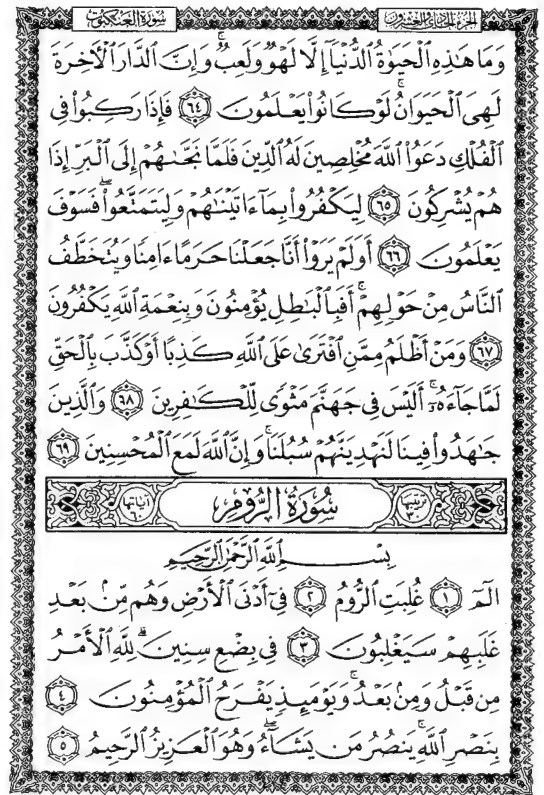 الجزء الحادي والعشرون
سورة العنكبوت
وَمَا هَٰذِهِ ٱلْحَيَوٰةُ ٱلدُّنْيَآ إِلَّا لَهْوٌ وَلَعِبٌ ۚ وَإِنَّ ٱلدَّارَ ٱلْأَخِرَةَ
لَهِىَ ٱلْحَيَوَانُ ۚ لَوْ كَانُوا۟ يَعْلَمُونَ ٦٤ فَإِذَا رَكِبُوا۟ فِى
ٱلْفُلْكِ دَعَوُا۟ ٱللَّهَ مُخْلِصِينَ لَهُ ٱلدِّينَ فَلَمَّا نَجَّىٰهُمْ إِلَى ٱلْبَرِّ إِذَا
هُمْ يُشْرِكُونَ ٦٥ لِيَكْفُرُوا۟ بِمَآ ءَاتَيْنَٰهُمْ وَلِيَتَمَتَّعُوا۟ ۖ فَسَوْفَ
يَعْلَمُونَ ٦٦ أَوَلَمْ يَرَوْا۟ أَنَّا جَعَلْنَا حَرَمًا ءَامِنًا وَيُتَخَطَّفُ
ٱلنَّاسُ مِنْ حَوْلِهِمْ ۚ أَفَبِٱلْبَٰطِلِ يُؤْمِنُونَ وَبِنِعْمَةِ ٱللَّهِ يَكْفُرُونَ
٦٧ وَمَنْ أَظْلَمُ مِمَّنِ ٱفْتَرَىٰ عَلَى ٱللَّهِ كَذِبًا أَوْ كَذَّبَ بِٱلْحَقِّ
لَمَّا جَآءَهُۥٓ ۚ أَلَيْسَ فِى جَهَنَّمَ مَثْوًى لِّلْكَٰفِرِينَ ٦٨ وَٱلَّذِينَ
جَٰهَدُوا۟ فِينَا لَنَهْدِيَنَّهُمْ سُبُلَنَا ۚ وَإِنَّ ٱللَّهَ لَمَعَ ٱلْمُحْسِنِينَ ٦٩
ترتيبها ٣٠ سُورَةُ الرُّومِ آياتها ٦٠
بِسْمِ ٱللَّهِ ٱلرَّحْمَٰنِ ٱلرَّحِيمِ
الٓمٓ ١ غُلِبَتِ ٱلرُّومُ ٢ فِىٓ أَدْنَى ٱلْأَرْضِ وَهُم مِّنۢ بَعْدِ
غَلَبِهِمْ سَيَغْلِبُونَ ٣ فِى بِضْعِ سِنِينَ ۗ لِلَّهِ ٱلْأَمْرُ
مِن قَبْلُ وَمِنۢ بَعْدُ ۚ وَيَوْمَئِذٍ يَفْرَحُ ٱلْمُؤْمِنُونَ ٤
بِنَصْرِ ٱللَّهِ ۚ يَنصُرُ مَن يَشَآءُ ۖ وَهُوَ ٱلْعَزِيزُ ٱلرَّحِيمُ ٥